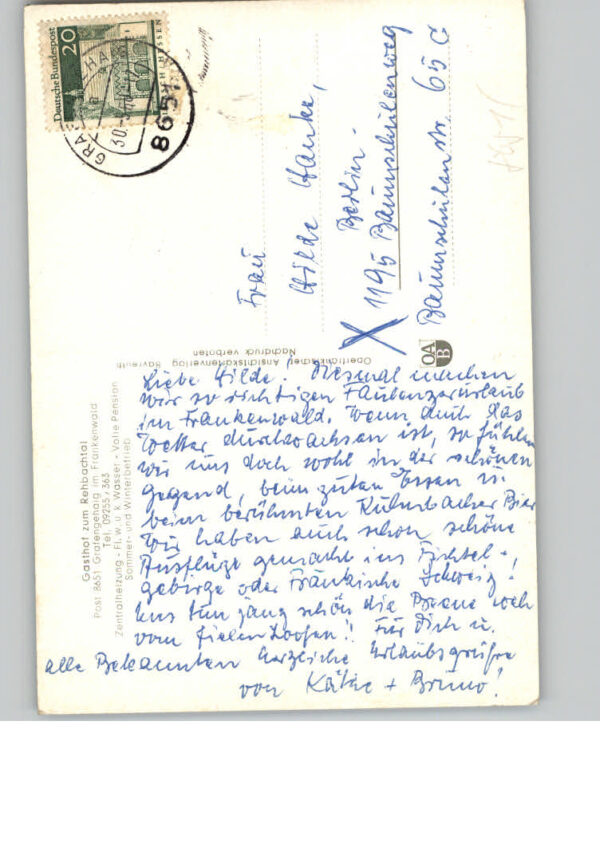 Liebe Hilde! Diesmal machen
wir so richtigen Faulenzerurlaub
im Frankenwald. Wenn auch das
Wetter durchwachsen ist, so fühlen
wir uns doch wohl in der schönen
Gegend, beim guten Essen u.
beim berühmten Kulmbacher Bier
Wir haben auch schon schöne
Ausflüge gemacht ins Fichtel-,
gebirge oder Fränkische Schweiz!
Uns tun ganz schön die Beene weh
vom fielen Loofen!! Für Dich u.
alle Bekannten herzliche Urlaubsgrüße
von Käthe + Bruno!
Frau
Hilde Hanke,
Berlin-
1195 Baumschulenweg
Baumschulenstr. 65 G
Gasthof zum Rehbachtal
Post 8651 Grafengehaig im Frankenwald
Tel. 09255/363
Zentralheizung - Fl. w. u. k. Wasser - Volle Pension
Sommer- und Winterbetrieb
Oberfränkischer Ansichtskartenverlag Bayreuth
Nachdruck verboten
OA
B
Deutsche Bundespost
20
HESSEN
8651
30.